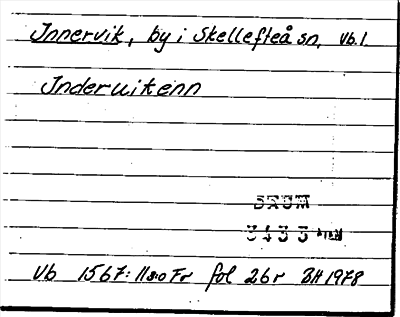 Innervik, by i Skellefteå sn, Vb.l.
Inderuikenn
Vb 1567: 11 s:o Fr fol 26r BH 1978